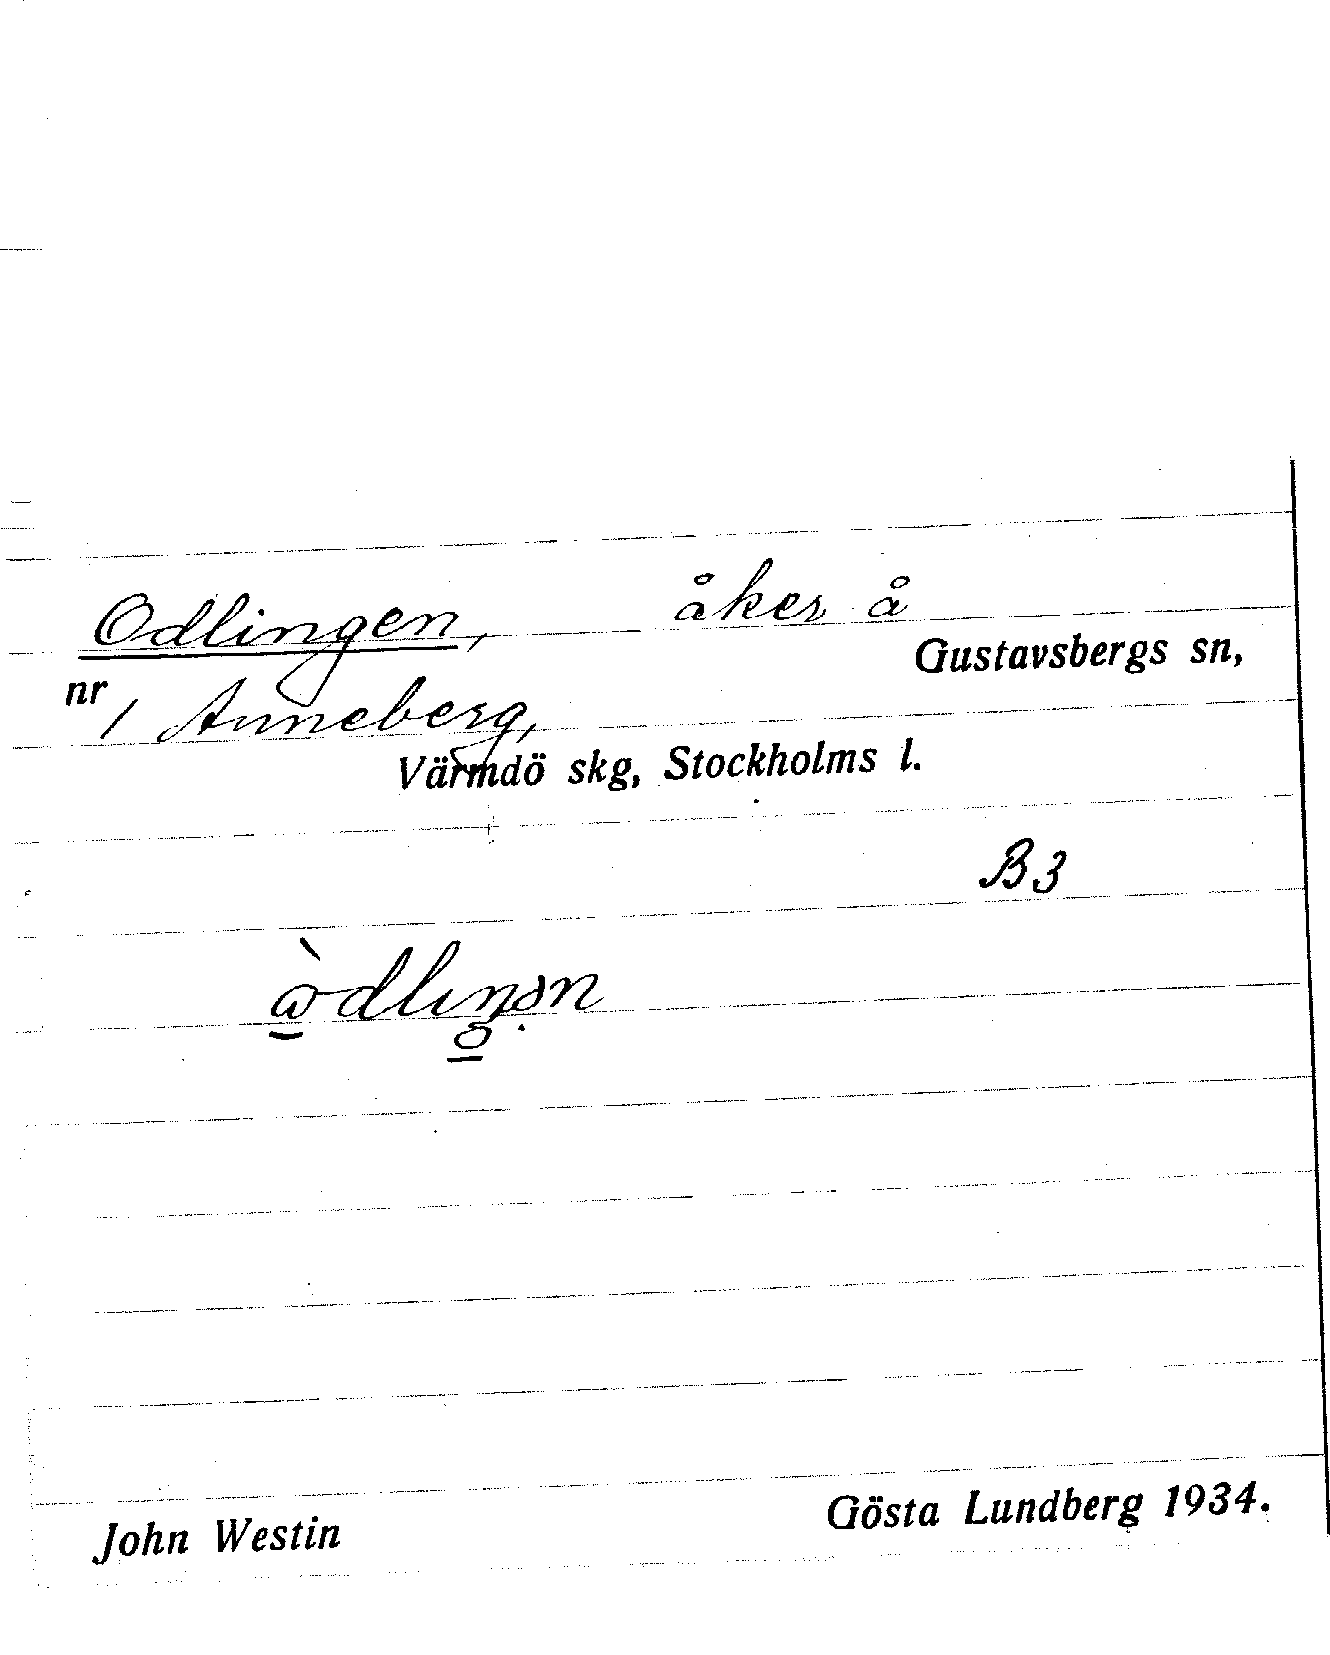 Odlingen, åker å
Gustavsbergs sn,
nr 1 Anneberg,
Värmdö skg, Stockholms l.
B3
ɷ̀dlɩŋən
John Westin Gösta Lundberg 1934.